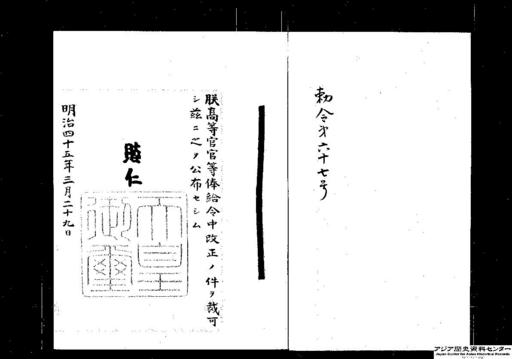 勅令第六十七号
朕高等官官等俸給令中改正ノ件ヲ裁可
シ茲ニ之ヲ公布セシム
睦仁
天皇御璽
明治四十五年三月二十九日
アジア歴史資料センター
Japan Center for Asian Historical Records